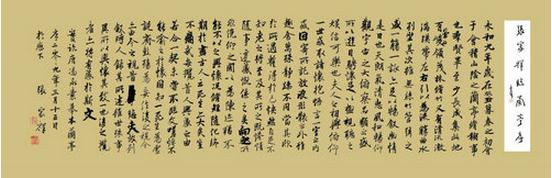 張家輝臨蘭亭序
永和九年歲在癸丑暮春之初會
于會稽山陰之蘭亭脩禊事
也羣賢畢至少長咸集此地
有崇山峻領茂林脩竹又有清流激
湍暎帶左右引以為流觴曲水
列坐其次雖無絲竹管弦之
盛一觴一詠亦足以暢敘幽情
是日也天朗氣清惠風和暢仰
觀宇宙之大俯察品類之盛
所以遊目騁懷足以極視聽之
娛信可樂也夫人之相與俯仰
一世或取諸懷抱悟言一室之內
或因寄所託放浪形骸之外雖
趣舍萬殊靜躁不同當其欣
於所遇蹔得於己快然自足不
知老之將至及其所之既惓情
隨事遷感慨係之矣向之所
欣俛仰之閒以為陳迹猶不
能不以之興懷況脩短隨化終
期於盡古人云死生亦大矣豈
不痛哉每攬昔人興感之由
若合一契未嘗不臨文嗟悼不
能喻之於懷固知一死生為虛
誕齊彭殤為妄作後之視今
亦由今之視昔悲夫故列
敘時人錄其所述雖世殊事
異所以興懷其致一也後之攬
者亦將有感於斯文
唐馮承素摹本蘭亭
序二零一九年三月十五日張家輝